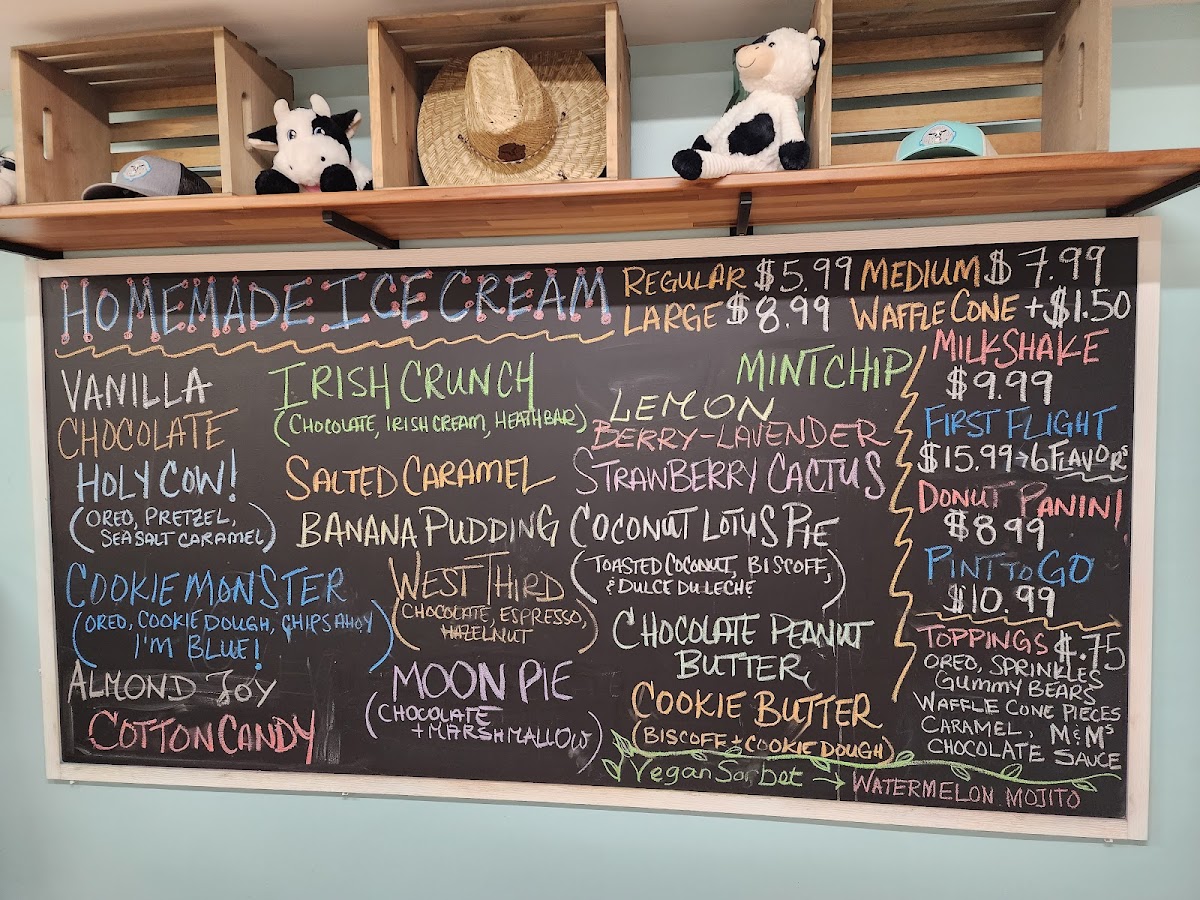 HOMEMADE ICE CREAM
REGULAR $5.99 MEDIUM $7.99
LARGE $8.99 WAFFLE CONE +$1.50
VANILLA
CHOCOLATE
HOLY COW!
(OREO, PRETZEL,
SEA SALT CARAMEL)
COOKIE MONSTER
(OREO, COOKIE DOUGH, CHIPS AHOY
I'M BLUE!)
ALMOND JOY
COTTON CANDY
IRISH CRUNCH
(CHOCOLATE, IRISH CREAM, HEATH BAR)
SALTED CARAMEL
BANANA PUDDING
WEST THIRD
(CHOCOLATE, ESPRESSO,
HAZELNUT)
MOON PIE
(CHOCOLATE
+ MARSHMALLOW)
MINT CHIP
LEMON
BERRY-LAVENDER
STRAWBERRY CACTUS
COCONUT LOTUS PIE
(TOASTED COCONUT, BISCOFF,
& DULCE DU LECHE)
CHOCOLATE PEANUT
BUTTER
COOKIE BUTTER
(BISCOFF + COOKIE DOUGH)
Vegan Sorbet → WATERMELON MOJITO
MILKSHAKE
$9.99
FIRST FLIGHT
$15.99→6 FLAVORS
DONUT PANINI
$8.99
PINT TO GO
$10.99
TOPPINGS $.75
OREO, SPRINKLES
GUMMY BEARS
WAFFLE CONE PIECES
CARAMEL, M&Ms
CHOCOLATE SAUCE